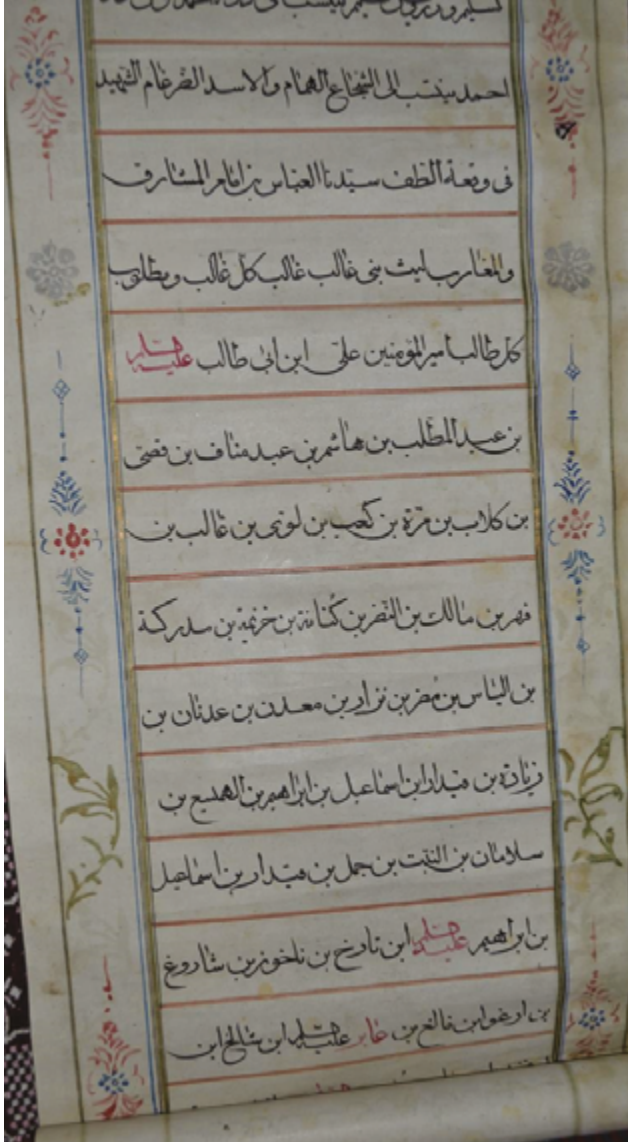 احمد ينتسب الى الشجاع الهمام والاسد الضرغام الشهيد
فى وقعة الطف سيدنا العباس بن امام المشارق
والمغارب ليث بنى غالب غالب كل غالب ومطلوب
كل طالب امير المؤمنين على ابن ابى طالب عليه السلام
بن عبد المطلب بن هاشم بن عبد مناف بن قصى
بن كلاب بن مرة بن كعب بن لوى بن غالب بن
فهر بن مالك بن النضر بن كنانة بن خزيمة بن مدركة
بن الياس بن مضر بن نزار بن معد بن عدنان بن
بن قيدار ابن اسماعيل بن ابراهيم بن الهميع بن
سلامان بن النبت بن حمل بن قيدار بن اسماعيل
بن ابراهيم عليه السلام ابن تارخ بن ناخور بن شاروغ
بن ارغو ابن فالغ بن عابر عليه السلام ابن شالخ ابن